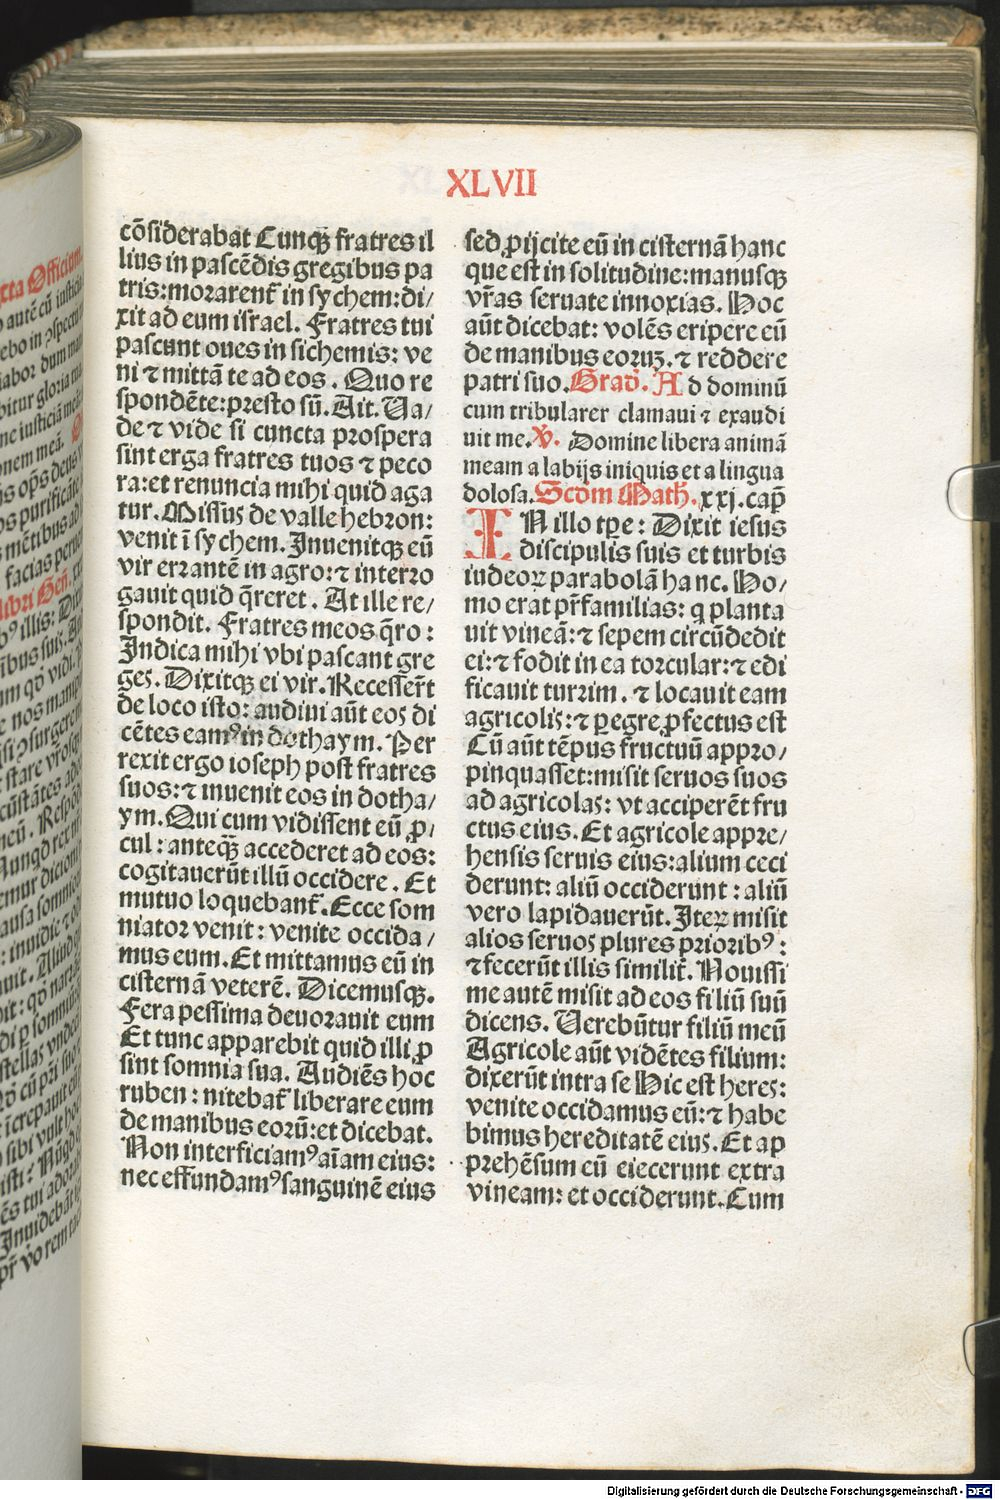 XLVII
cõsiderabat Cunq̃ fratres il
lius in pascẽdis gregibus pa
tris:morarent̃ in sychem:di/
xit ad eum israel. Fratres tui
pascunt oues in sichemis: ve
ni ⁊ mittã te ad eos. Quo re
spondẽte:presto sũ. Ait. Ua/
de ⁊ vide si cuncta prospera
sint erga fratres tuos ⁊ peco
ra:et renuncia mihi quid aga
tur. Missus de valle hebron:
venit ĩ sychem. Inuenitq̃ eũ
vir errantẽ in agro:⁊ interro
gauit quid q̃reret. At ille re/
spondit. Fratres meos q̃ro:
Indica mihi vbi pascant gre
ges. Dixitq̃ ei vir. Recesser̃t
de loco isto: audiui aũt eos di
cẽtes eamꝰ in dothaym. Per
rexit ergo ioseph post fratres
suos:⁊ inuenit eos in dotha/
ym. Qui cum vidissent eũ ꝓ/
cul: anteq̃ accederet ad eos:
cogitauerũt illũ occidere. Et
mutuo loquebant̃. Ecce som
niator venit: venite occida/
mus eum. Et mittamus eũ in
cisternã veterẽ. Dicemusq̃.
Fera pessima deuorauit eum
Et tunc apparebit quid illi ꝓ
sint somnia sua. Audiẽs hoc
ruben: nitebat̃ liberare eum
de manibus eorũ:et dicebat.
Non interficiamꝰ aĩam eius:
nec effundamꝰ sanguinẽ eius
sed ꝓijcite eũ in cisternã hanc
que est in solitudine:manusq̃
vr̃as seruate innoxias. Hoc
aũt dicebat: volẽs eripere eũ
de manibus eoruꝫ. ⁊ reddere
patri suo. Grad̃. Ad dominũ
cum tribularer clamaui ⁊ exaudi
uit me. ℣. Domine libera animã
meam a labijs iniquis et a lingua
dolosa. Scd̃m Math̃. xxj. cap̃
IN illo tp̃e: Dixit iesus
discipulis suis et turbis
iudeoꝝ parabolã hanc. Ho/
mo erat pr̃familias: q̃ planta
uit vineã:⁊ sepem circũdedit
ei:⁊ fodit in ea torcular:⁊ edi
ficauit turrim. ⁊ locauit eam
agricolis:⁊ ꝑegre ꝓfectus est
Cũ aũt tẽpus fructuũ appro/
pinquasset:misit seruos suos
ad agricolas: vt acciperẽt fru
ctus eius. Et agricole appre/
hensis seruis eius:alium ceci
derunt: aliũ occiderunt: aliũ
vero lapidauerũt. Iteꝝ misit
alios seruos plures priorib⁹:
⁊fecerũt illis similit̃. Nouissi
me autẽ misit ad eos filiũ suũ
dicens. Uerebũtur filiũ meũ
Agricole aũt vidẽtes filium:
dixerũt intra se Hic est heres:
venite occidamus eũ:⁊ habe
bimus hereditatẽ eius. Et ap
prehẽsum eũ eiecerunt extra
vineam: et occiderunt. Cum
Digitalisierung gefördert durch die Deutsche Forschungsgemeinschaft - DFG